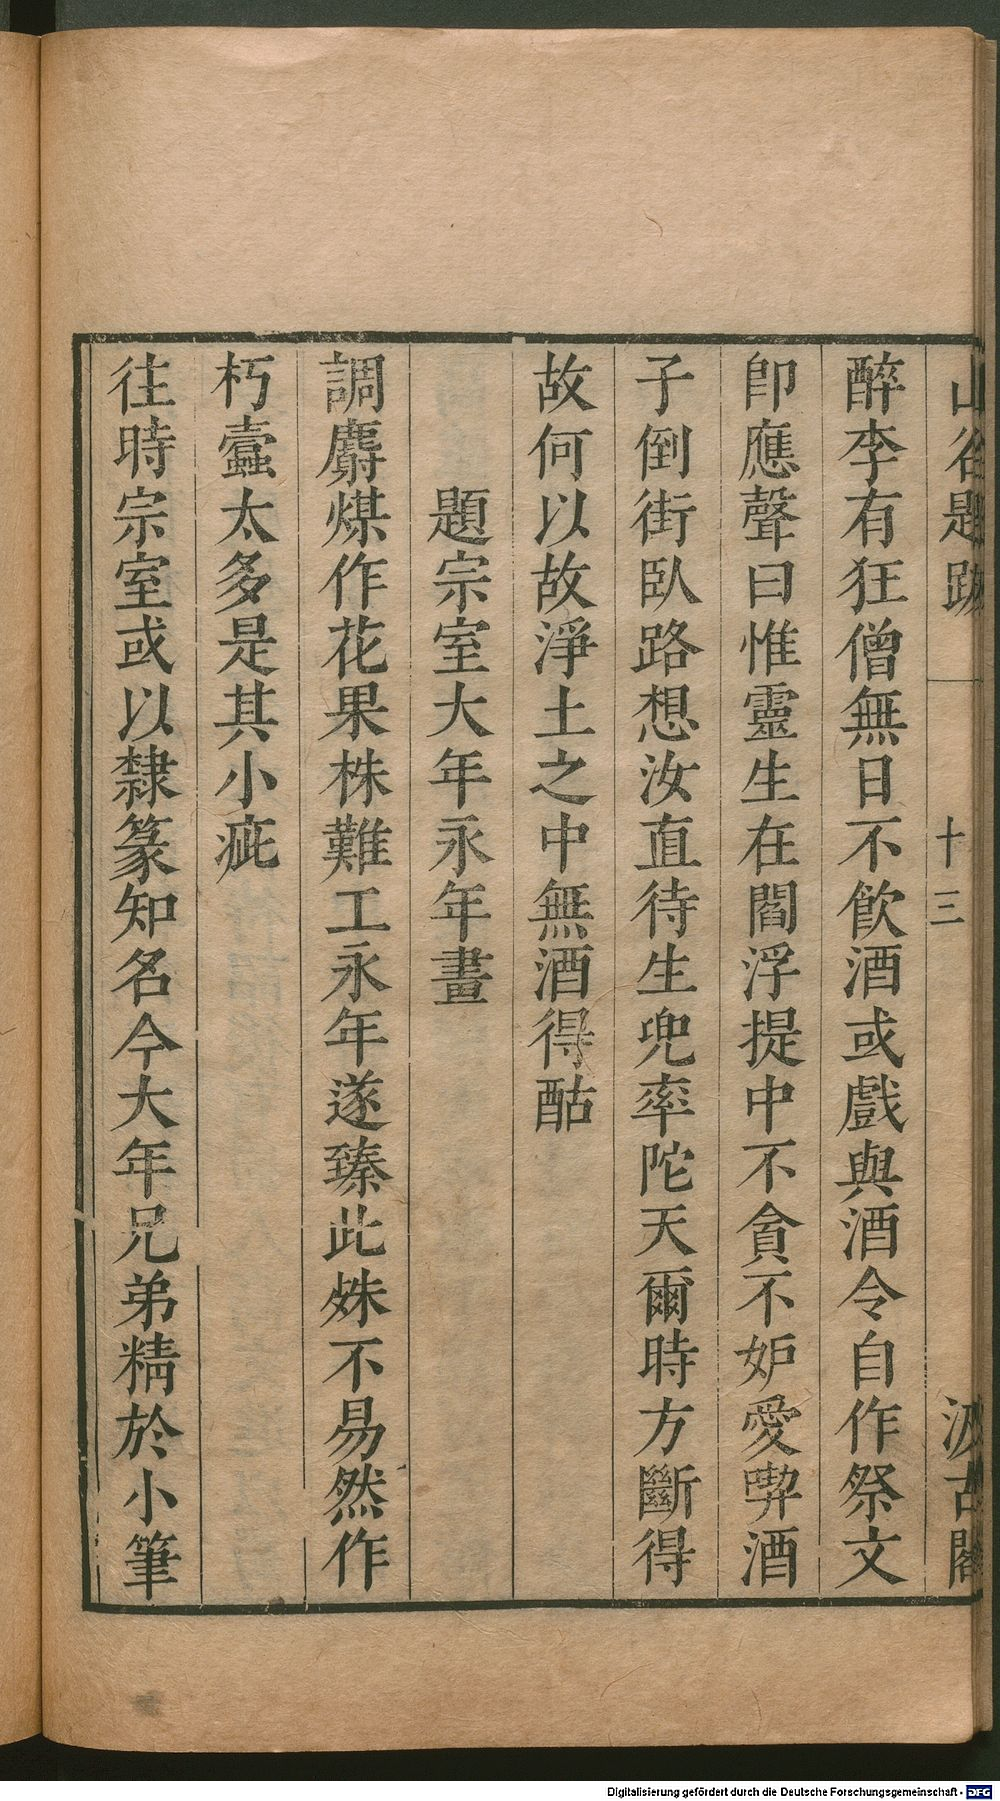 山谷題跋 十三 汲古閣
醉李有狂僧無日不飲酒或戲與酒令自作祭文
卽應聲曰惟靈生在閻浮提中不貪不妒愛喫酒
子倒街臥路想汝直待生兜率陀天爾時方斷得
故何以故淨土之中無酒得酤
題宗室大年永年畫
調麝煤作花果株難工永年遂臻此姝不易然作
朽蠧太多是其小疵
往時宗室或以隸篆知名今大年兄弟精於小筆
Digitalisierung gefördert durch die Deutsche Forschungsgemeinschaft - DFG